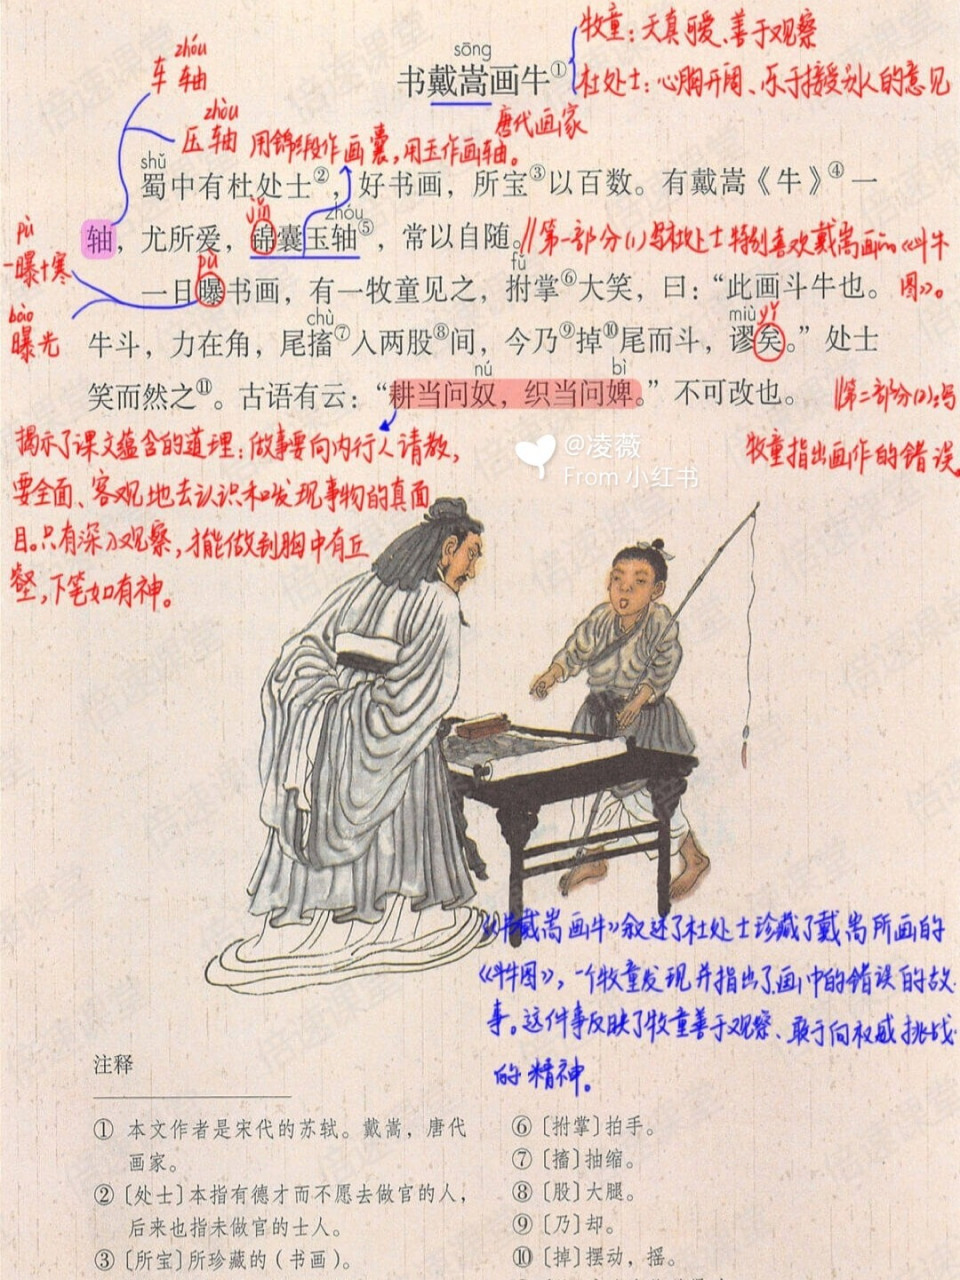 牧童：天真可爱、善于观察
sōng
书戴嵩画牛①
杜处士：心胸开阔、乐于接受别人的意见
zhóu
车轴
zhòu
压轴
唐代画家
用锦缎作画囊，用玉作画轴。
shǔ
蜀中有杜处士②，好书画，所宝③以百数。有戴嵩《牛》④一
jǐn zhóu
轴，尤所爱，锦囊玉轴⑤，常以自随。
//第一部分(1)写杜处士特别喜欢戴嵩画的《斗牛
图》。
pù
一曝十寒
pù fǔ
一日曝书画，有一牧童见之，拊掌⑥大笑，曰：“此画斗牛也。
bào
曝光
chù miù yǐ
牛斗，力在角，尾搐⑦入两股⑧间，今乃⑨掉⑩尾而斗，谬矣。”处士
nú bì
笑而然之⑪。古语有云：“耕当问奴，织当问婢。”不可改也。
//第二部分(2)：写
牧童指出画作的错误。
揭示了课文蕴含的道理：做事要向内行人请教，
要全面、客观地去认识和发现事物的真面
目。只有深入观察，才能做到胸中有丘
壑，下笔如有神。
@凌薇
From 小红书
《书戴嵩画牛》叙述了杜处士珍藏了戴嵩所画的
《斗牛图》，一个牧童发现并指出了画中的错误的故
事。这件事反映了牧童善于观察、敢于向权威挑战
的精神。
注释
① 本文作者是宋代的苏轼。戴嵩，唐代
画家。
②〔处士〕本指有德才而不愿去做官的人，
后来也指未做官的士人。
③〔所宝〕所珍藏的（书画）。
⑥〔拊掌〕拍手。
⑦〔搐〕抽缩。
⑧〔股〕大腿。
⑨〔乃〕却。
⑩〔掉〕摆动，摇。
倍速课堂